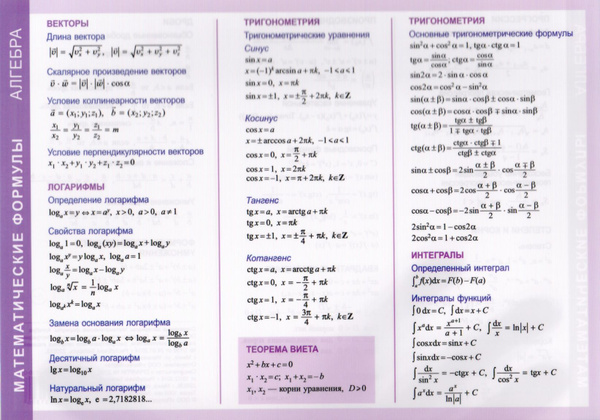 МАТЕМАТИЧЕСКИЕ ФОРМУЛЫ АЛГЕБРА
ВЕКТОРЫ
Длина вектора
|v̄| = √(vₓ² + vᵧ²), |v̄| = √(vₓ² + vᵧ² + v_z²)
Скалярное произведение векторов
v̄ · w̄ = |v̄| · |w̄| · cos α
Условие коллинеарности векторов
ā = (x₁; y₁; z₁), b̄ = (x₂; y₂; z₂)
x₁/x₂ = y₁/y₂ = z₁/z₂ = m
Условие перпендикулярности векторов
x₁ · x₂ + y₁ · y₂ + z₁ · z₂ = 0
ЛОГАРИФМЫ
Определение логарифма
logₐ x = y ⇔ x = aʸ, x > 0, a > 0, a ≠ 1
Свойства логарифма
logₐ 1 = 0, logₐ (xy) = logₐ x + logₐ y
logₐ xʸ = y logₐ x, logₐ a = 1
logₐ x/y = logₐ x − logₐ y
logₐ ⁿ√x = 1/n logₐ x
log_{aᵏ} xᵏ = logₐ x
Замена основания логарифма
logₐ x = log_b a · log_a x ⇔ logₐ x = log_b x / log_b a
Десятичный логарифм
lg x = log₁₀ x
Натуральный логарифм
ln x = logₑ x, e = 2,7182818...
ТРИГОНОМЕТРИЯ
Тригонометрические уравнения
Синус
sin x = a
x = (−1)ᵏ arcsin a + πk, −1 < a < 1
sin x = 0, x = πk
sin x = ±1, x = ± π/2 + 2πk, k∈Z
Косинус
cos x = a
x = ± arccos a + 2πk, −1 < a < 1
cos x = 0, x = π/2 + πk
cos x = 1, x = 2πk
cos x = −1, x = π + 2πk, k∈Z
Тангенс
tg x = a, x = arctg a + πk
tg x = 0, x = πk
tg x = ±1, x = ± π/4 + πk, k∈Z
Котангенс
ctg x = a, x = arcctg a + πk
ctg x = 0, x = − π/2 + πk
ctg x = 1, x = − π/4 + πk
ctg x = −1, x = 3π/4 + πk, k∈Z
ТЕОРЕМА ВИЕТА
x² + bx + c = 0
x₁ · x₂ = c; x₁ + x₂ = −b
x₁, x₂ — корни уравнения, D ≥ 0
ТРИГОНОМЕТРИЯ
Основные тригонометрические формулы
sin² α + cos² α = 1, tg α · ctg α = 1
tg α = sin α / cos α; ctg α = cos α / sin α
sin 2α = 2 · sin α · cos α
cos 2α = cos² α − sin² α
sin(α ± β) = sin α · cos β ± cos α · sin β
cos(α ± β) = cos α · cos β ∓ sin α · sin β
tg(α ± β) = (tg α ± tg β) / (1 ∓ tg α · tg β)
ctg(α ± β) = (ctg α · ctg β ∓ 1) / (ctg β ± ctg α)
sin α ± cos β = 2 sin (α ± β)/2 · cos (α ∓ β)/2
cos α + cos β = 2 cos (α + β)/2 · cos (α − β)/2
cos α − cos β = −2 sin (α + β)/2 · sin (α − β)/2
2 sin² α = 1 − cos 2α
2 cos² α = 1 + cos 2α
ИНТЕГРАЛЫ
Определенный интеграл
∫ₐᵇ f(x)dx = F(b) − F(a)
Интегралы функций
∫ 0 dx = C, ∫ dx = x + C
∫ xᵃ dx = xᵃ⁺¹/(a + 1) + C, ∫ dx/x = ln|x| + C
∫ cos x dx = sin x + C
∫ sin x dx = −cos x + C
∫ dx/sin² x = −ctg x + C, ∫ dx/cos² x = tg x + C
∫ aˣ dx = aˣ/ln|a| + C